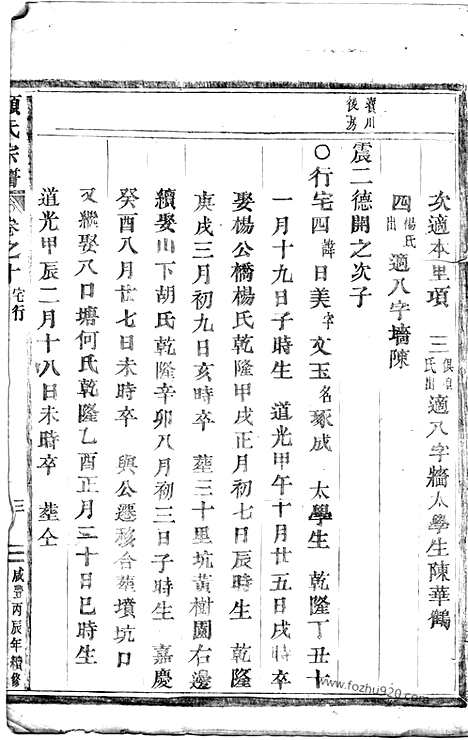 次適本里項 三俱項氏出適八字牆太學生陳華鶴
四楊氏出適八字墻陳
瀆川後房
震二德開之次子
〇行宅四諱日美字文玉名琢成 太學生 乾隆丁丑十
一月十九日子時生 道光甲午十月廿五日戌時卒
娶楊公橋楊氏乾隆甲戌正月初七日辰時生 乾隆
庚戌三月初九日亥時卒 葬三十里坑黃樹園右邊
續娶山下胡氏乾隆辛卯八月初三日子時生 嘉慶
癸酉八月廿七日未時卒 與公遷移合葬墳坑口
又繼娶八口塘何氏乾隆乙酉正月三十日巳時生
道光甲辰二月十八日未時卒 葬仝
項氏宗譜 卷之十 宅行
三 咸豐丙辰年續修
www.fozhu920.com